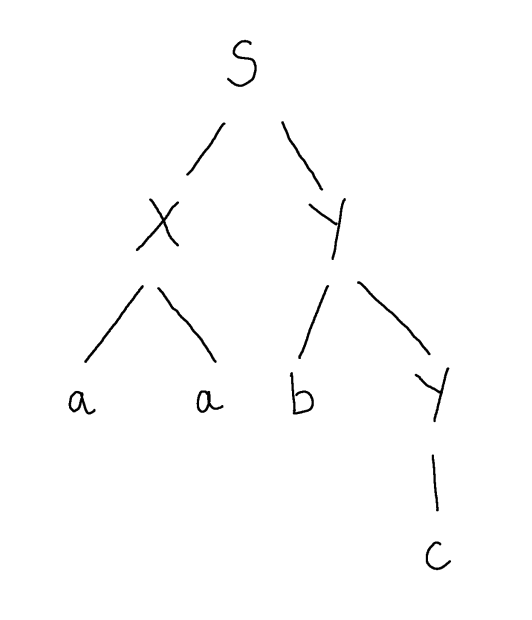 S
X Y
a a b Y
c